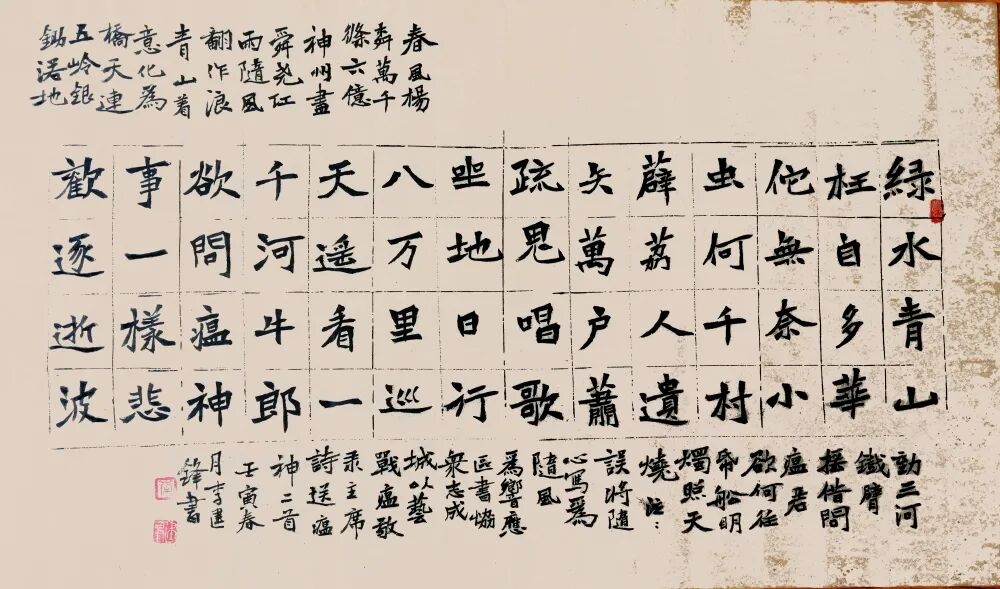 緑水青山
枉自多華
佗無奈小
虫何千村
薜荔人遺
矢萬户蕭
疏鬼唱歌
坐地日行
八万里巡
天遥看一
千河牛郎
欲問瘟神
事一樣悲
歡逐逝波
春風楊
萬千
條六億
神州盡
舜尧红
雨隨風
翻作浪
青山着
意化為
橋天連
五岭銀
鋤落地
動三河
鐵臂
摇借問
瘟君
欲何往
帋船明
燭照天
燒 注：
誤將隨
心寫為
隨風
為響應
區書協
衆志成
城以藝
戰瘟敬
录主席
詩送瘟
神二首
壬寅春
月李建
鋒書